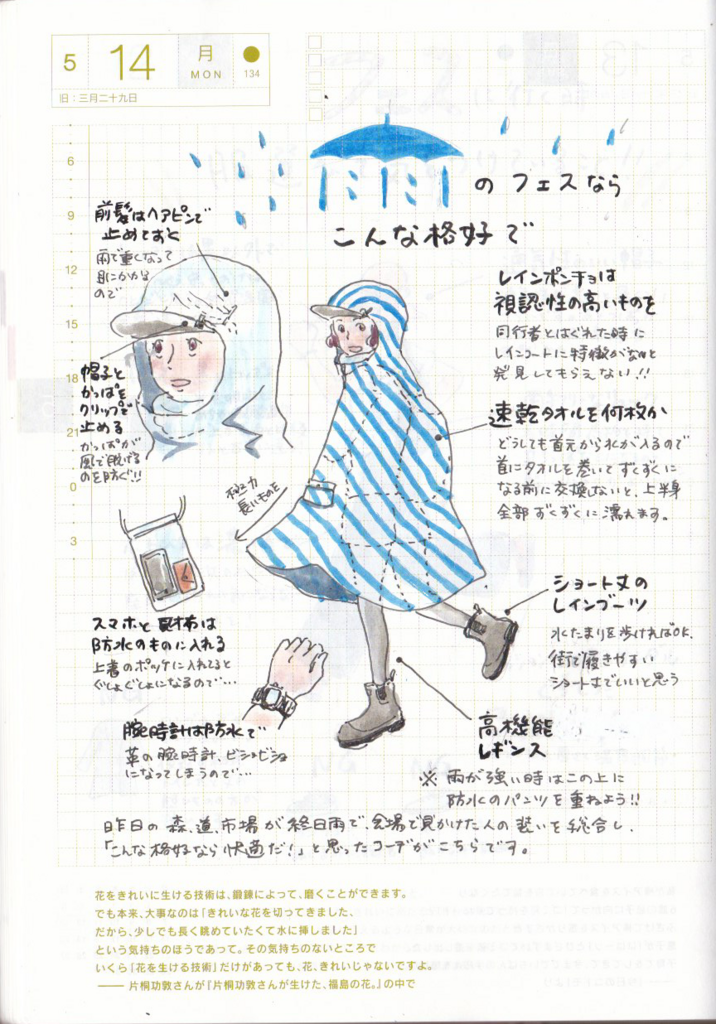 5 14 月
MON
134
旧：三月二十九日
6
9
12
15
18
21
0
3
のフェスなら
こんな格好で
前髪はヘアピンで
止めておく
雨で重くなって
目にかかる
ので
帽子と
かっぱを
クリップで
止める
かっぱが
風で脱げる
のを防ぐ!!
極力
長いものを
レインポンチョは
視認性の高いものを
同行者とはぐれた時に
レインコートに特徴がないと
発見してもらえない!!
速乾タオルを何枚か
どうしても首元から水が入るので
首にタオルを巻いてずくずくに
なる前に交換しないと、上半身
全部ずくずくに濡れます。
スマホと財布は
防水のものに入れる
上着のポッケに入れてると
ぐしょぐしょになるので…
腕時計は防水で
革の腕時計、ビショビショ
になってしまうので…
ショート丈の
レインブーツ
水たまりを歩ければOK.
街で履きやすい
ショート丈でいいと思う
高機能
レギンス
※ 雨が強い時はこの上に
防水のパンツを重ねよう!!
昨日の森、道、市場が終日雨で、会場で見かけた人の装いを総合し、
「こんな格好なら快適だ!」と思ったコーデがこちらです。
花をきれいに生ける技術は、鍛錬によって、磨くことができます。
でも本来、大事なのは「きれいな花を切ってきました、
だから、少しでも長く眺めていたくて水に挿しました」
という気持ちのほうであって。その気持ちのないところで
いくら「花を生ける技術」だけがあっても、花、きれいじゃないですよ。
―― 片桐功敦さんが『片桐功敦さんが生けた、福島の花。』の中で